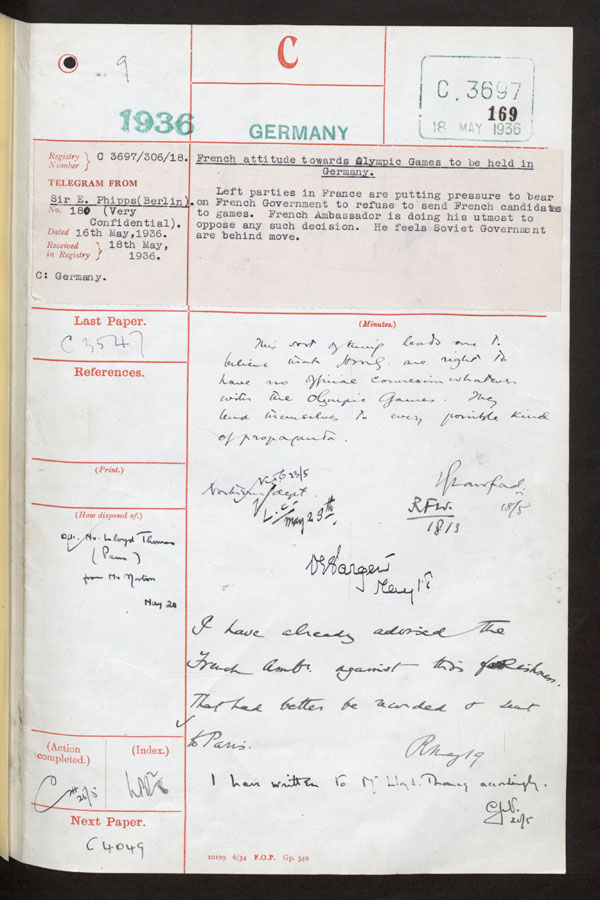 9
C
C. 3697
169
18 MAY 1936
1936
GERMANY
Registry Number } C 3697/306/18.
TELEGRAM FROM
Sir E. Phipps(Berlin).
No. 180 (Very
Confidential).
Dated 16th May,1936.
Received in Registry } 18th May,
1936.
C: Germany.
French attitude towards Olympic Games to be held in
Germany.
Left parties in France are putting pressure to bear
on French Government to refuse to send French candidates
to games. French Ambassador is doing his utmost to
oppose any such decision. He feels Soviet Government
are behind move.
Last Paper.
C 3547
References.
(Print.)
(How disposed of.)
Mr. Lloyd Thomas
(Paris)
from Mr Norton
May 20
(Action completed.)
(Index.)
Next Paper.
C 4049
(Minutes.)
This sort of thing leads one to
believe that are right to
have no official connexion whatever
with the Olympic Games. They
lend themselves to every possible kind
of propaganda.
Northern dept.
23/5
L.C.
May 25th.
18/5
R.F.W.
18/5
O E Sargent
May 18
I have already advised the
French Amb. against this foolishness.
That had better be recorded & sent
to Paris.
R May 19
I have written to Mr Lloyd Thomas accordingly.
20/5
10109 6/34 F.O.P. Gp. 340